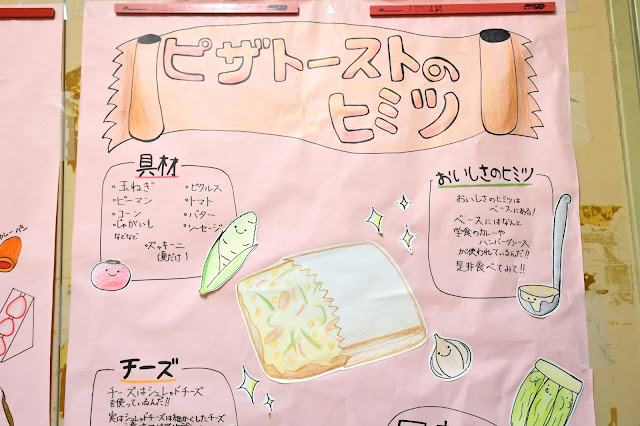 ピザトーストの
ヒミツ
具材
・玉ねぎ
・ピーマン
・コーン
・じゃがいも
などなど
・ピクルス
・トマト
・バター
・ソーセージ
・ズッキーニ
(夏だけ)
おいしさのヒミツ
おいしさのヒミツは
ベースにある!
ベースにはなんと
学食のカレーや
ハンバーグソース
が使われているんだ!!
是非食べてみて!!
チーズ
チーズはシュレッドチーズ
を使っているんだ!!
実はシュレッドチーズは細かくしたチーズ
カレーパン